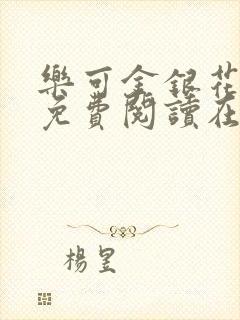 樂可金銀花
免費閱讀在
楊昱